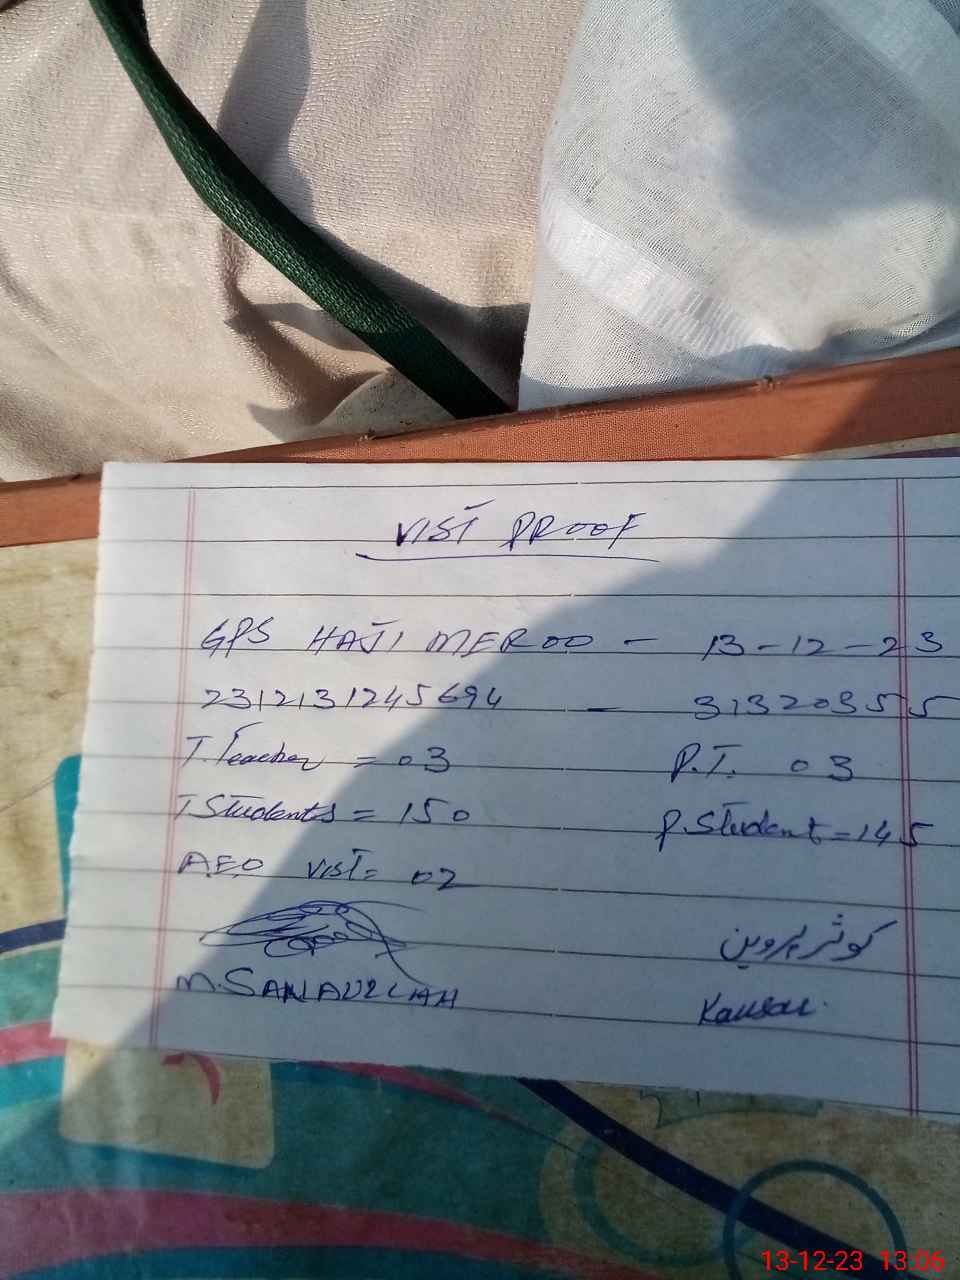 VIST PROOF
GPS HAJI MEROO - 13-12-23
2312131245694 - 31320355
T.Teacher = 03 P.T. 03
T Students = 150 P.Student = 145
A.E.O VIST = 02
کوثر پروین
M.SANAULLAH Kausar
13-12-23 13:06